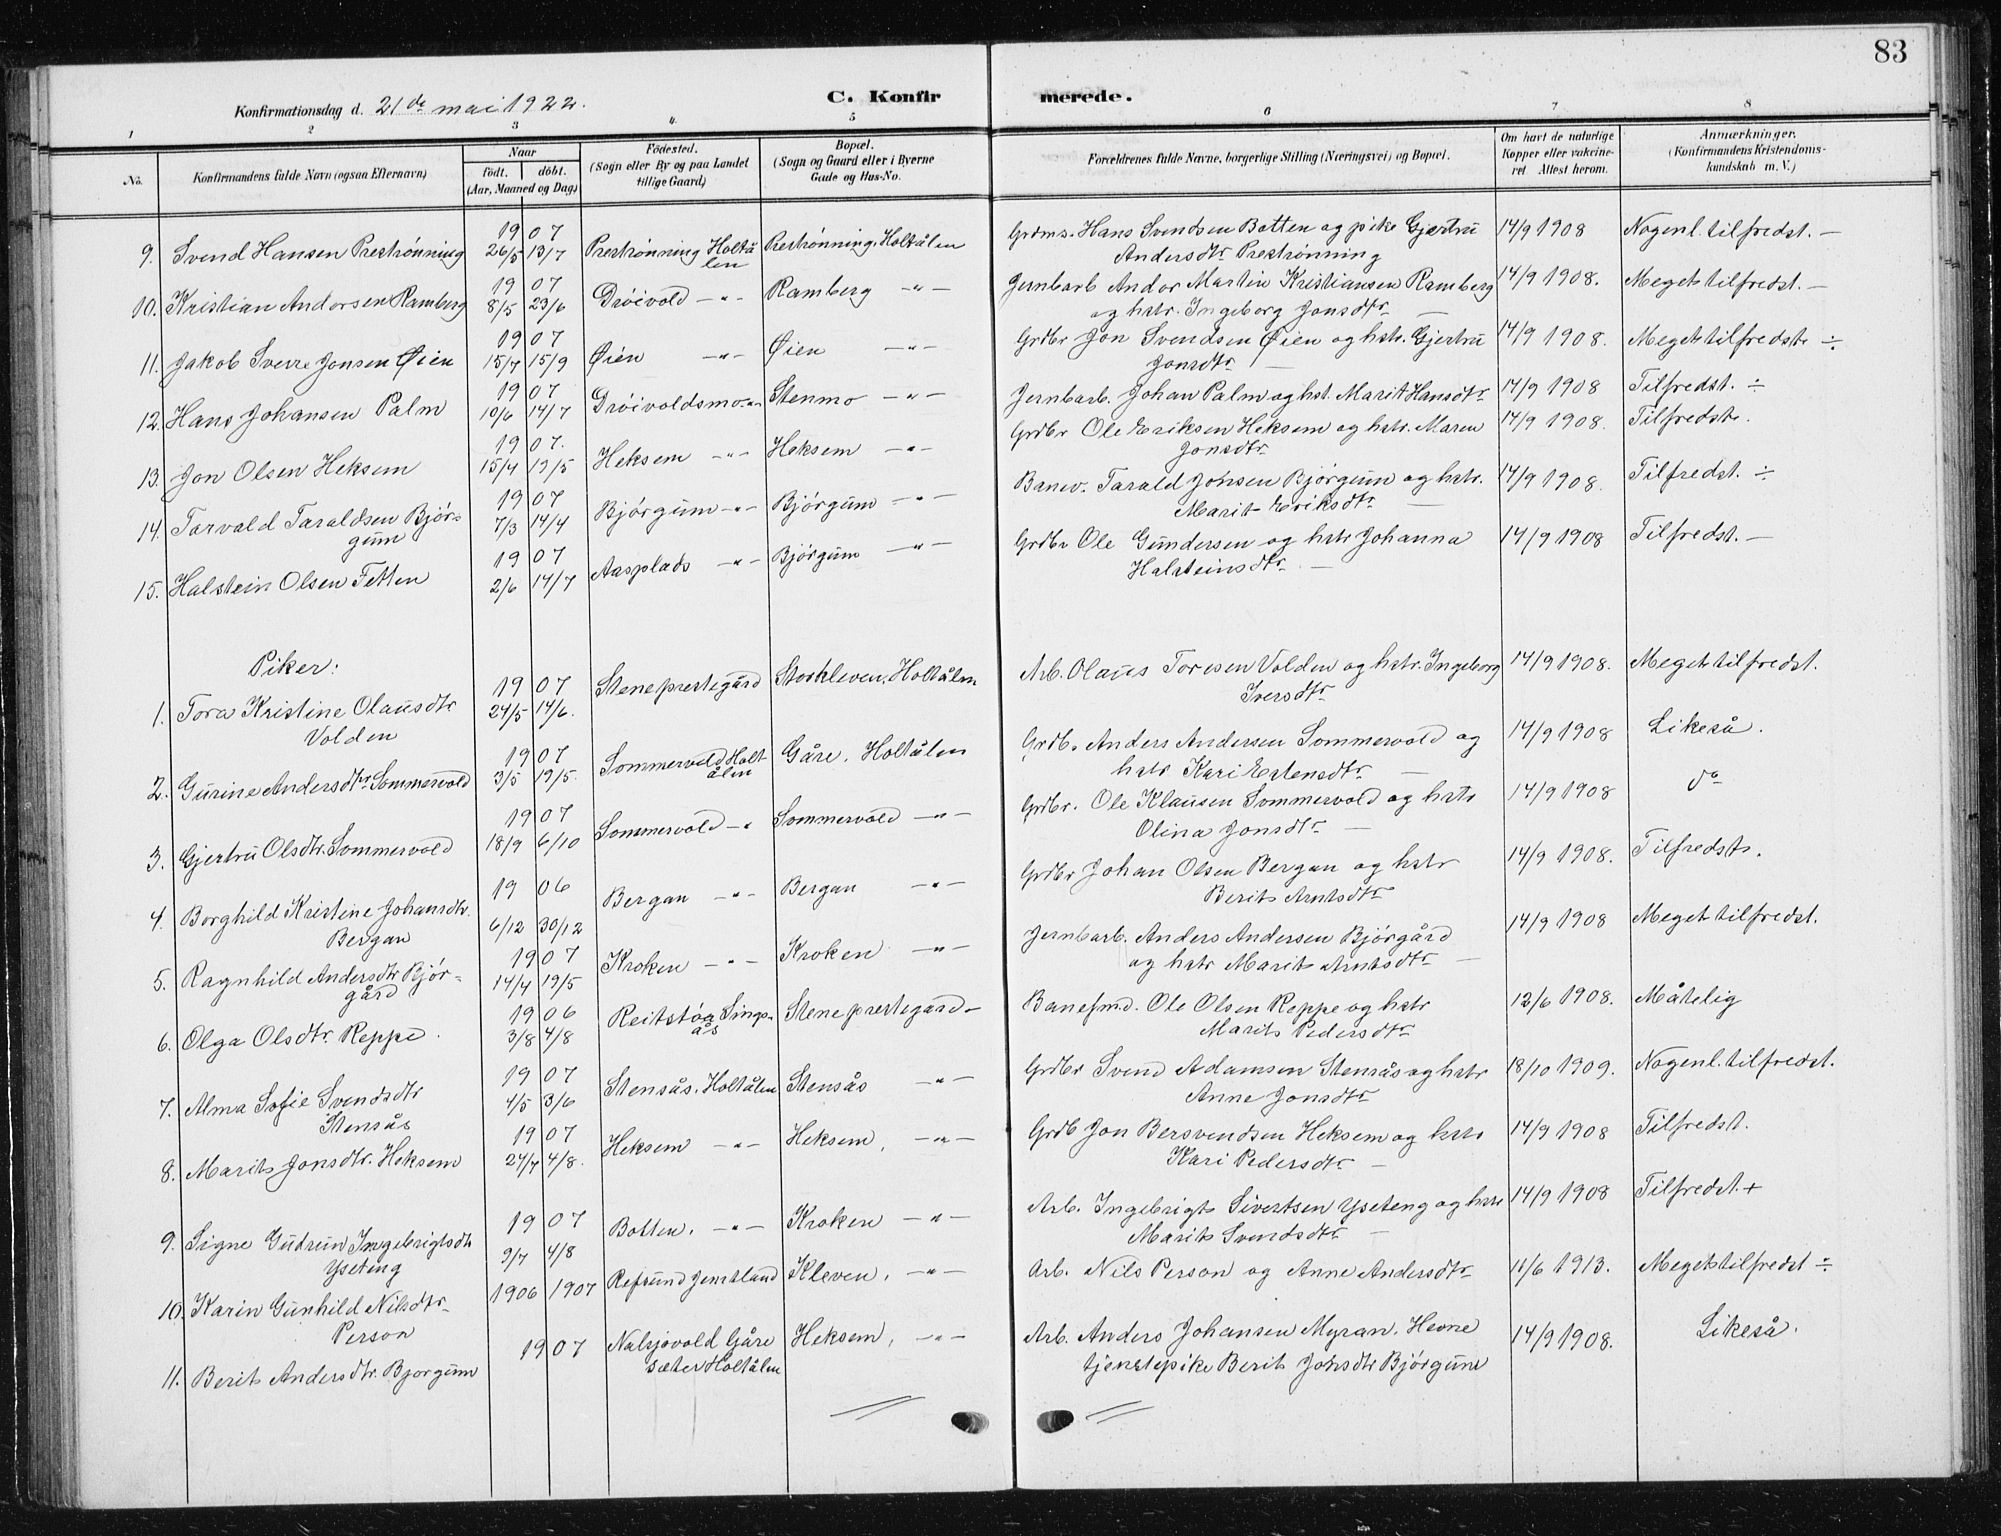 83
Konfirmationsdag d. 21de mai 1922.
C. Konfirmerede.
1 2 3 4 5 6 7 8
No. Konfirmandens fulde Navn (ogsaa Efternavn) Naar født. døbt. (Aar, Maaned og Dag) Fødested. (Sogn eller By og paa Landet tillige Gaard) Bopæl. (Sogn og Gaard eller i Byerne Gade og Hus-No. Forældrenes fulde Navne, borgerlige Stilling (Næringsvei) og Bopæl. Om havt de naturlige Kopper eller vakcineret Attest herom. Anmærkninger. (Konfirmandens Kristendomskundskab m. V.)
9. Svend Hansen Prestrønning 1907 26/5 13/7 Prestrønning Holtålen Prestrønning, Holtålen Grdms. Hans Svendsen Botten og pike Gjertru 14/9 1908 Nogenl. tilfredst. —
Andersdtr Prestrønning
10. Kristian Andorsen Ramberg 1907 8/5 23/6 Drøivold —"— Ramberg —"— Jernbarb Andor Martin Kristiansen Ramberg 14/9 1908. Meget tilfredst. —
og hstr. Ingeborg Jonsdtr —
11. Jakob Sverre Jonsen Øien 1907 15/7 15/9 Øien —"— Øien —"— Grdbr Jon Svendsen Øien og hstr. Gjertru 14/9 1908. Meget tilfredst ÷
Jonsdtr —
12. Hans Johansen Palm 1907 10/6 14/7 Drøivoldsmo —"— Stenmo —"— Jernbarb. Johan Palm og hst. Marit Hansdtr 14/9 1908 Tilfredst. ÷
13. Jon Olsen Heksem 1907. 15/4 19/5 Heksem —"— Heksem —"— Grdbr Ole Eriksen Heksem og hstr. Maren 14/9 1908. Tilfredst.
Jonsdtr
14. Tarvald Taraldsen Bjør- 1907 7/3 14/4 Bjørgum —"— Bjørgum —"— Banev. Tarald Jonsen Bjørgum og hstr. 14/9 1908. Tilfredst. ÷
gum Marit Eriksdtr —
15. Halstein Olsen Fetten 1907 2/6 14/7 Aasplads —"— Bjørgum —"— Grdbr Ole Gundersen og hstr Johanna 14/9 1908 Tilfredst. —
Halsteinsdtr —
Piker:
1. Tora Kristine Olausdtr 1907 24/5 14/6. Stene prestegård Storkleven, Holtålen Arb. Olaus Toresen Volden og hstr. Ingeborg 14/9 1908. Meget tilfredst.
Volden Iversdtr
2. Gurine Andersdtr Sommervold 1907 3/5 19/5. Sommervold Holtålen Gåre. Holtålen Grdb. Anders Andersen Sommervold og 14/9 1908 Likeså.
hstr Kari Estensdtr —
3. Gjertru Olsdtr. Sommervold 1907 18/9 6/10 Sommervold —" Sommervold —"— Grdbr. Ole Klausen Sommervold og hstr 14/9 1908 do
Olina Jonsdtr —
4. Borghild Kristine Johansdtr. 1906 6/12 30/12 Bergan —"— Bergan —"— Grdbr Johan Olsen Bergan og hstr 14/9 1908. Tilfredst.
Bergan Berit Arntsdtr
5. Ragnhild Andersdtr Bjør- 1907 14/4 19/5 Kroken —"— Kroken —"— Jernbarb. Anders Andersen Bjørgård 14/9 1908 Meget tilfredst.
gård og hstr Marit Arntsdtr —
6. Olga Olsdtr Reppe. 1906 3/8 4/8 Reitstøa Singsås Stene prestegård — Banefmd. Ole Olsen Reppe og hstr 12/6 1908. Måtelig
Marit Pedersdtr
7. Alma Sofie Svendsdtr 1907 4/5 3/6 Stensås. Holtålen Stensås —"— Grdbr Svend Adamsen Stensås og hstr 18/10 1909. Nogenl. tilfredst.
Stensås Anne Jonsdtr
8. Marit Jonsdtr. Heksem 1907 24/7 4/8. Heksem —"— Heksem, —"— Grdb Jon Bersvendsen Heksem og hstr 14/9 1908 Tilfredst.
Kari Pedersdtr —
9. Signe Gudrun Ingebrigtsdtr 1907 9/7 4/8 Botten. —"— Kroken —"— Arb. Ingebrigt Sivertsen Yseteng og hstr 14/9 1908 Tilfredst. +
Yseteng Marit Svendsdtr —
10. Karin Gunhild Nilsdtr 1906 1907 Refsund Jemtland Kleven, —"— Arb. Nils Person og Anne Andersdtr 11/6 1913. Meget tilfredst ÷
Person
11. Berit Andersdtr. Bjørgum 1907 Nalsjøvold Gåre Heksem, —"— Arb. Anders Johansen Myran, Hevne 14/9 1908. Likeså.
sæter Holtålen tjenstepike Berit Jonsdtr Bjørgum